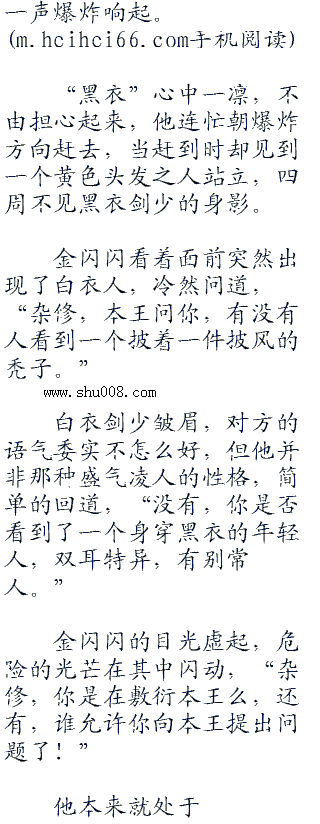 一声爆炸响起。
(m.hcihci66.com手机阅读)
“黑衣”心中一凛，不
由担心起来，他连忙朝爆炸
方向赶去，当赶到时却见到
一个黄色头发之人站立，四
周不见黑衣剑少的身影。
金闪闪看着面前突然出
现了白衣人，冷然问道，
“杂修，本王问你，有没有
人看到一个披着一件披风的
秃子。”
www.shu008.com
白衣剑少皱眉，对方的
语气委实不怎么好，但他并
非那种盛气凌人的性格，简
单的回道，“没有，你是否
看到了一个身穿黑衣的年轻
人，双耳特异，有别常
人。”
金闪闪的目光虚起，危
险的光芒在其中闪动，“杂
修，你是在敷衍本王么，还
有，谁允许你向本王提出问
题了！”
他本来就处于